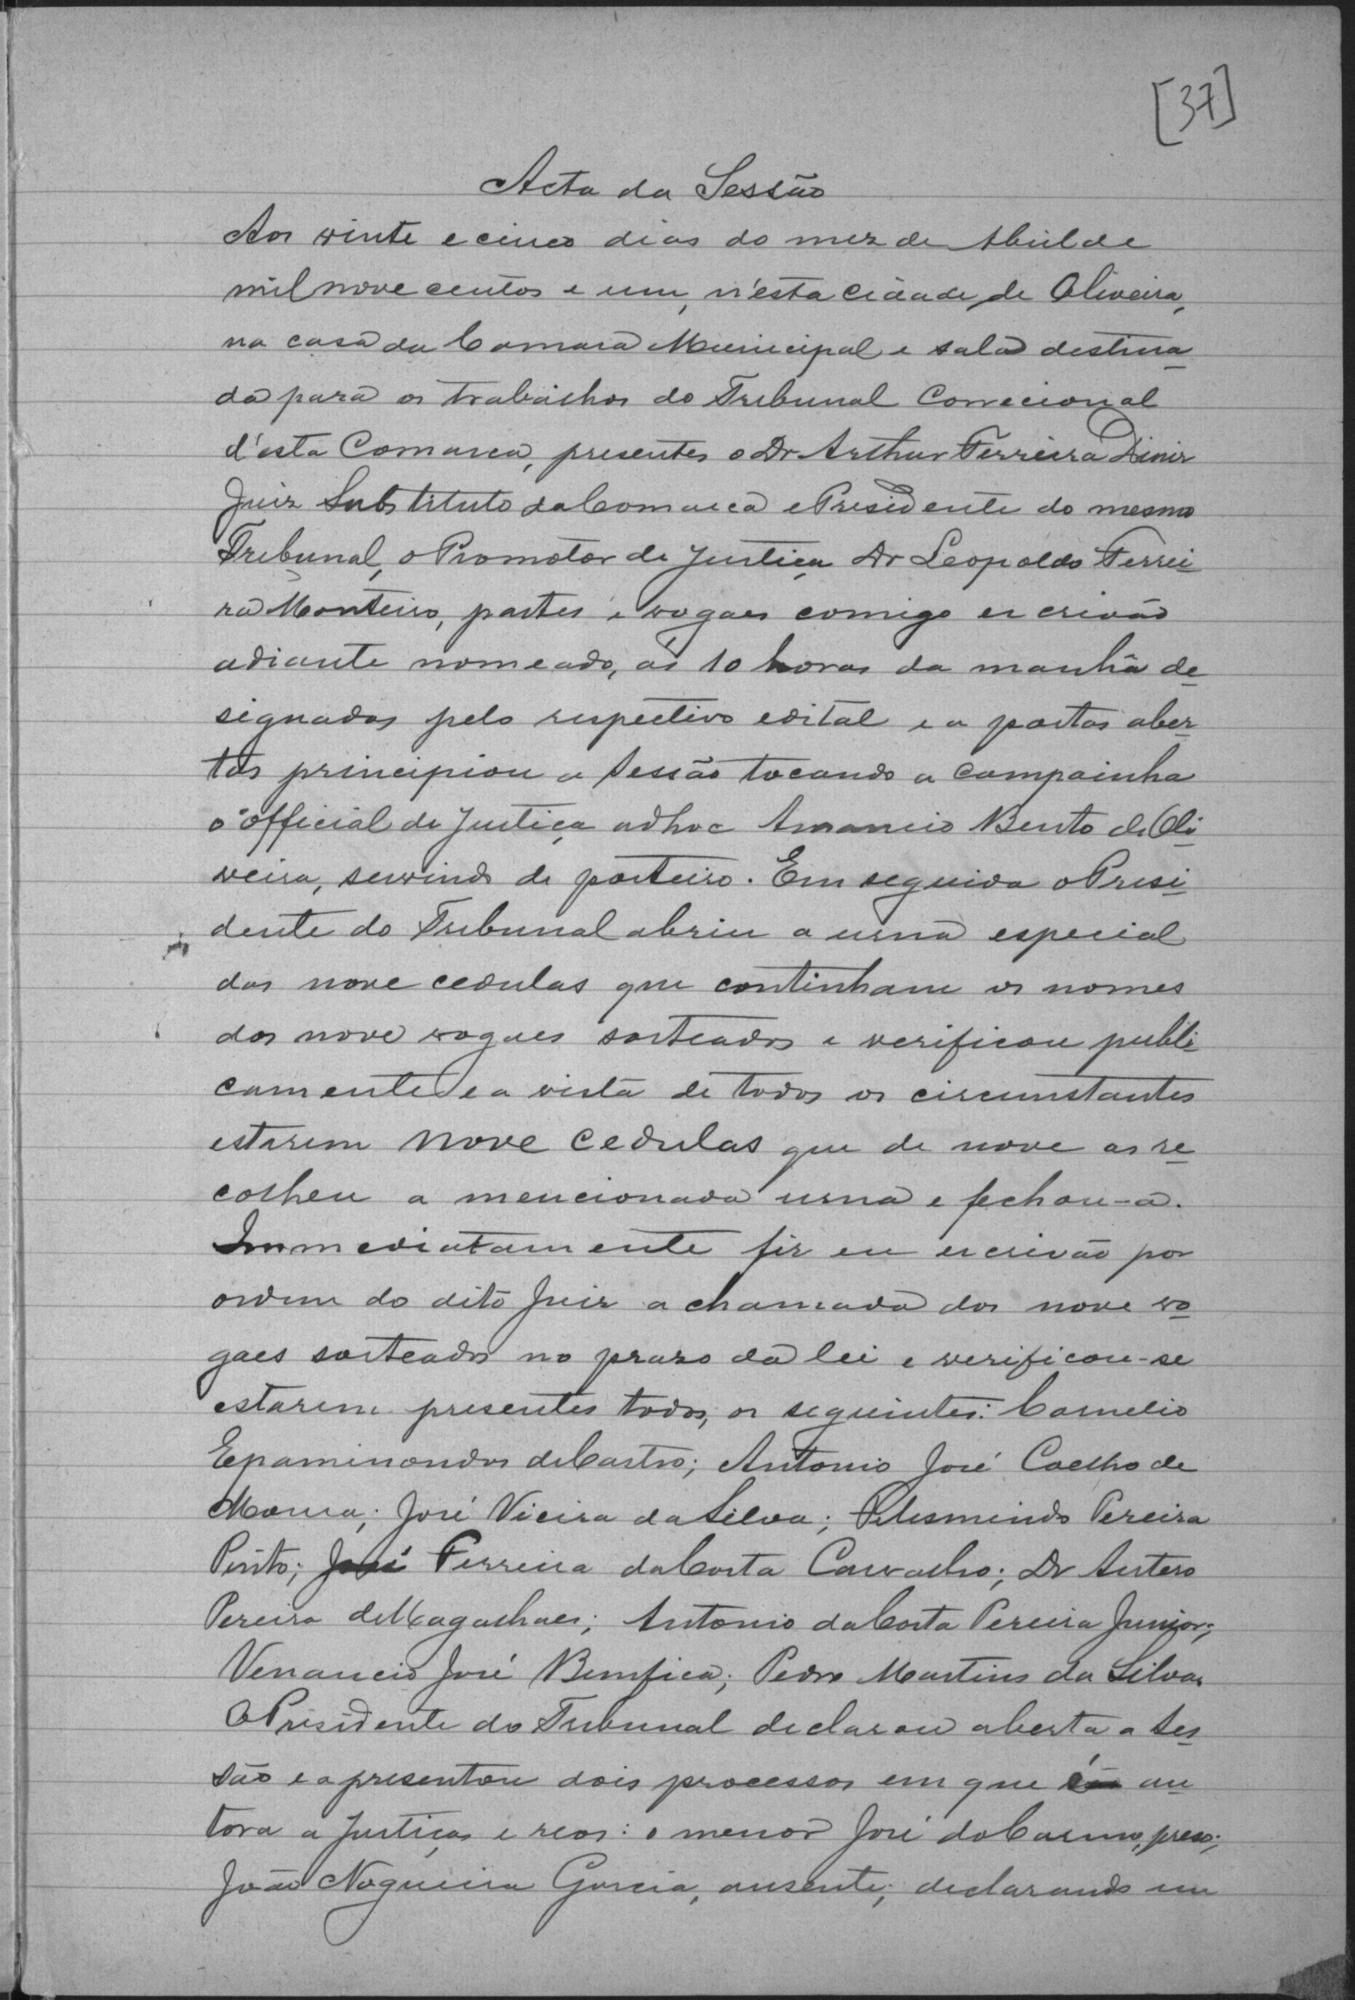 [37]
Acta da Sessão
Aos vinte e cinco dias do mez de Abril de
mil nove centos e um, n'esta cidade de Oliveira,
na casa da Camara Municipal e sala destina
da para os trabalhos do Tribunal Correcional
d'esta Comarca, presentes o Dr Arthur Ferreira Diniz
Juiz Substituto da Comarca e Presidente do mesmo
Tribunal, o Promotor de Justiça Dr Leopoldo Ferrei
ra Monteiro, partes e vogaes comigo escrivão
adiante nomeado, ás 10 horas da manhã de
signadas pelo respectivo edital e a portas aber
tas principiou a Sessão tocando a campainha
o official de Justiça adhoc Amancio Bento de Oli
veira, servindo de porteiro. Em seguida o Presi
dente do Tribunal abriu a urna especial
das nove cedulas que continham os nomes
dos nove vogaes sorteados e verificou publi
camente e a vista de todos os circumstantes
estarem nove cedulas que de nove as re
colheu a mencionada urna e fechou-a.
Immediatamente fiz eu escrivão por
ordem do dito Juiz a chamada dos nove vo
gaes sorteados no prazo da lei e verificou-se
estarem presentes todos, os seguintes: Cornelio
Epaminondas de Castro; Antonio José Coelho de
Moura; José Vieira da Silva; Pereira
Pinto; José Ferreira da Costa Carvalho; Dr Antero
Pereira de Magalhaes; Antonio da Costa Pereira Junior;
Venancio José Bemfica; Pedro Martins da Silva.
O Presidente do Tribunal declarou aberta a Ses
são e apresentou dois processos em que é au
tora a Justiça e reos: o menor José do Carmo, preso;
João Nogueira Garcia, ausente; declarando um